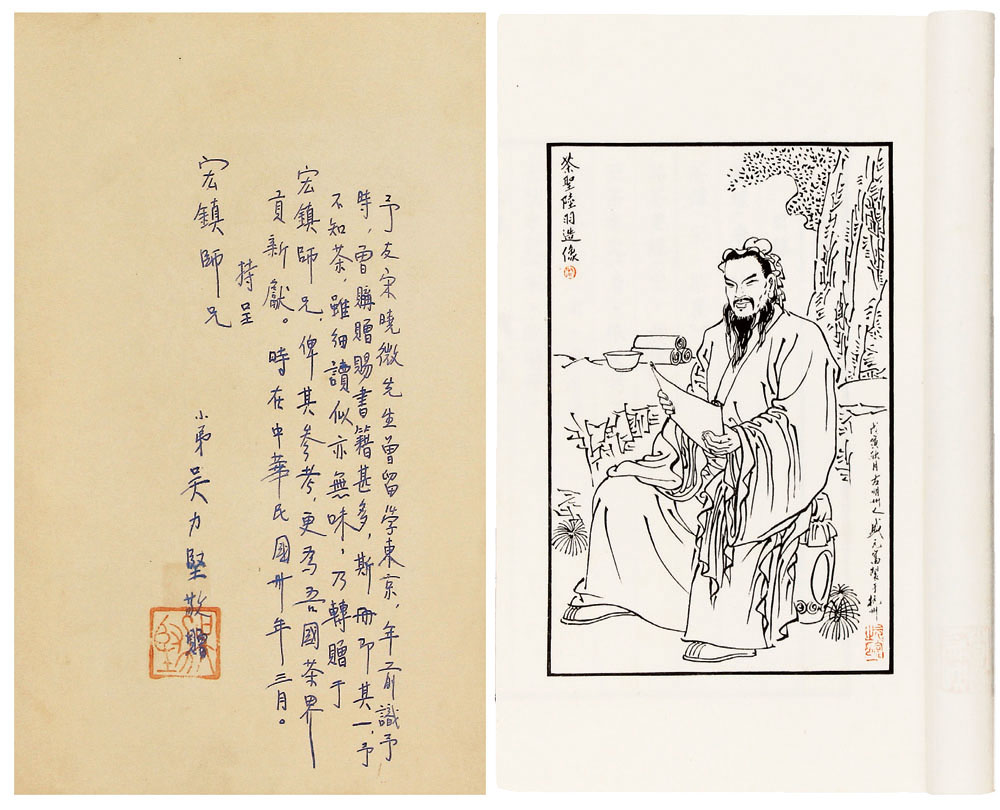 予友宋曉微先生曾留學東京，年前識予
時，曾購贈賜書籍甚多，斯冊即其一，予
不知茶，雖細讀似亦無味，乃轉贈于
宏鎮師兄，俾其參考，更為吾國茶界
貢新獻。時在中華民國卅年三月。
持呈
宏鎮師兄
小弟吴力堅敬贈
茶聖陸羽造像
戊寅秋月古明州人盛元富製于杭州